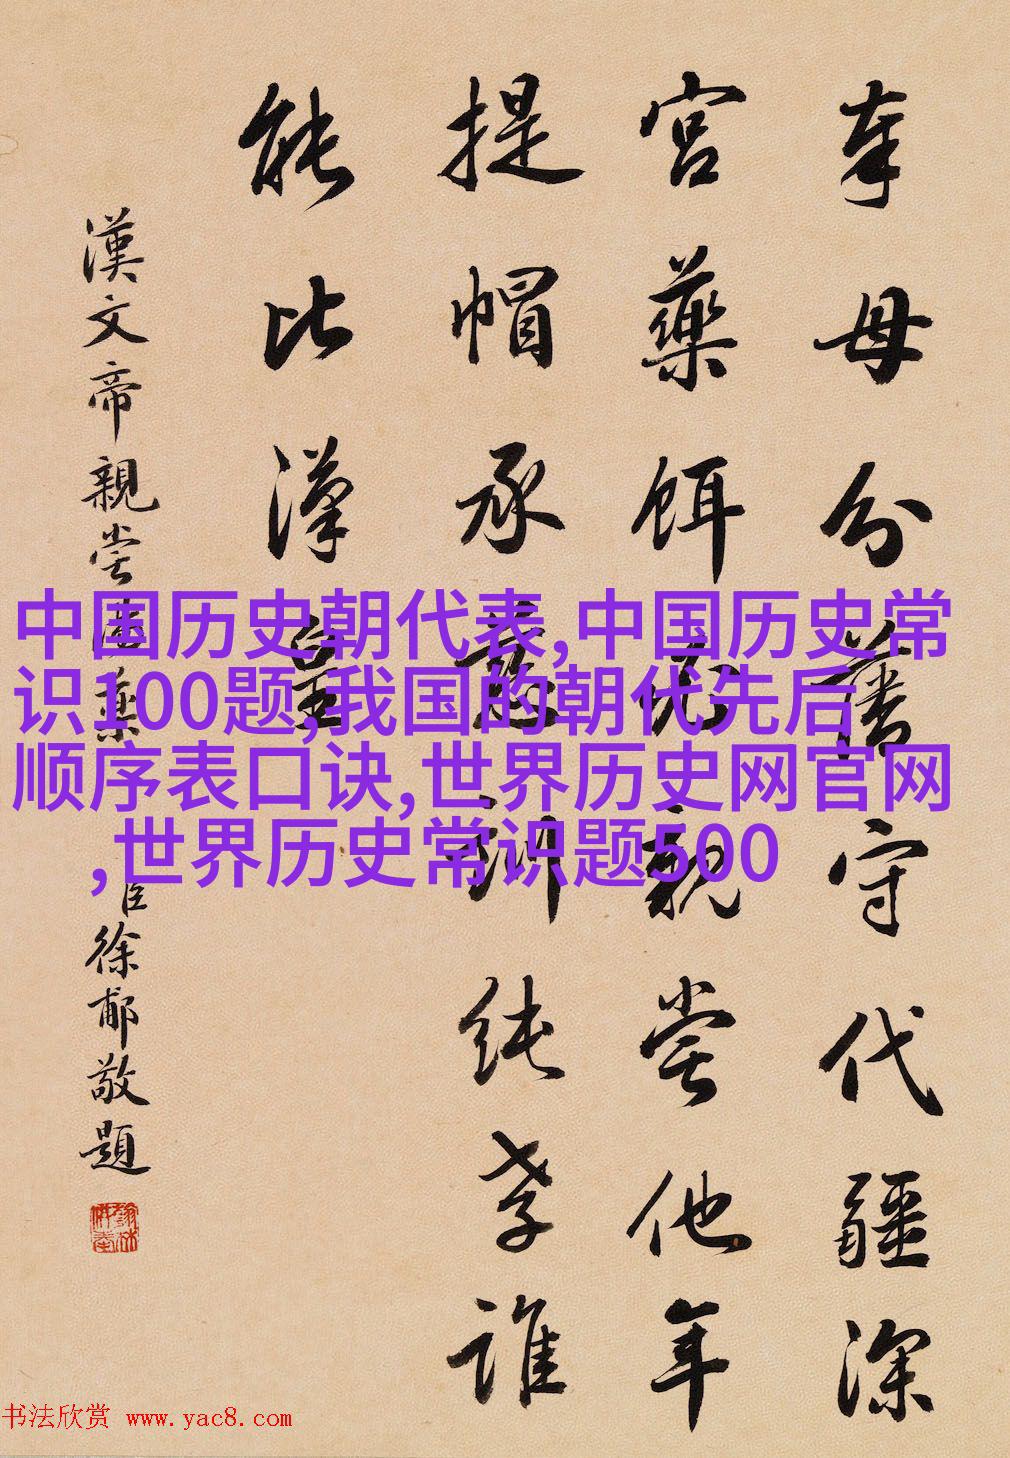 奉母分藩守代疆深
宮藥餌親嘗他年
提帽承慈訓純孝誰
能比漢皇
漢文帝親嘗湯藥
臣徐郙敬題
中国历史朝代表,中国历史常
识100题,我国的朝代先后
顺序表口诀,世界历史网官网
,世界历史常识题500
书法欣赏 www.yac8.com